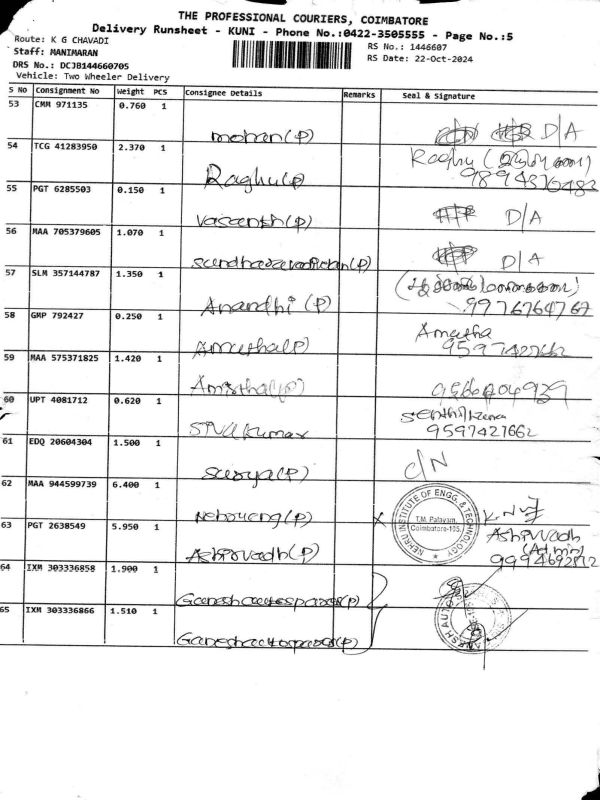 THE PROFESSIONAL COURIERS, COIMBATORE
Delivery Runsheet - KUNI - Phone No.:0422-3505555 - Page No.:5
Route: K G CHAVADI
RS No.: 1446607
Staff: MANIMARAN
RS Date: 22-Oct-2024
DRS No.: DCJB144660705
Vehicle: Two Wheeler Delivery
S No Consignment No Weight PCS Consignee Details Remarks Seal & Signature
53 CMM 971135 0.760 1
mohan(P) D/A
54 TCG 41283950 2.370 1
Raghu(P) Raghu
55 PGT 6285503 0.150 1
Vasanth(P) D/A
56 MAA 705379605 1.070 1
D/A
57 SLM 357144787 1.350 1
Anandhi (P) 9976764767
58 GMP 792427 0.250 1
Amutha(P) Amutha
59 MAA 575371825 1.420 1
Amirtha(P)
60 UPT 4081712 0.620 1
Sivakumar Senthilkumar
9597427662
61 EDQ 20604304 1.500 1
Surya(P) C/N
62 MAA 944599739 6.400 1
NEHRU INSTITUTE OF ENGG. & TECHNOLOGY
T.M. Palayam,
Coimbatore-105.
63 PGT 2638549 5.950 1
Ashirvadh(P) Ashirvadh
(Admin)
9994692812
64 IXM 303336858 1.900 1
Ganesh autospares(P)
65 IXM 303336866 1.510 1
Ganesh autospares(P)